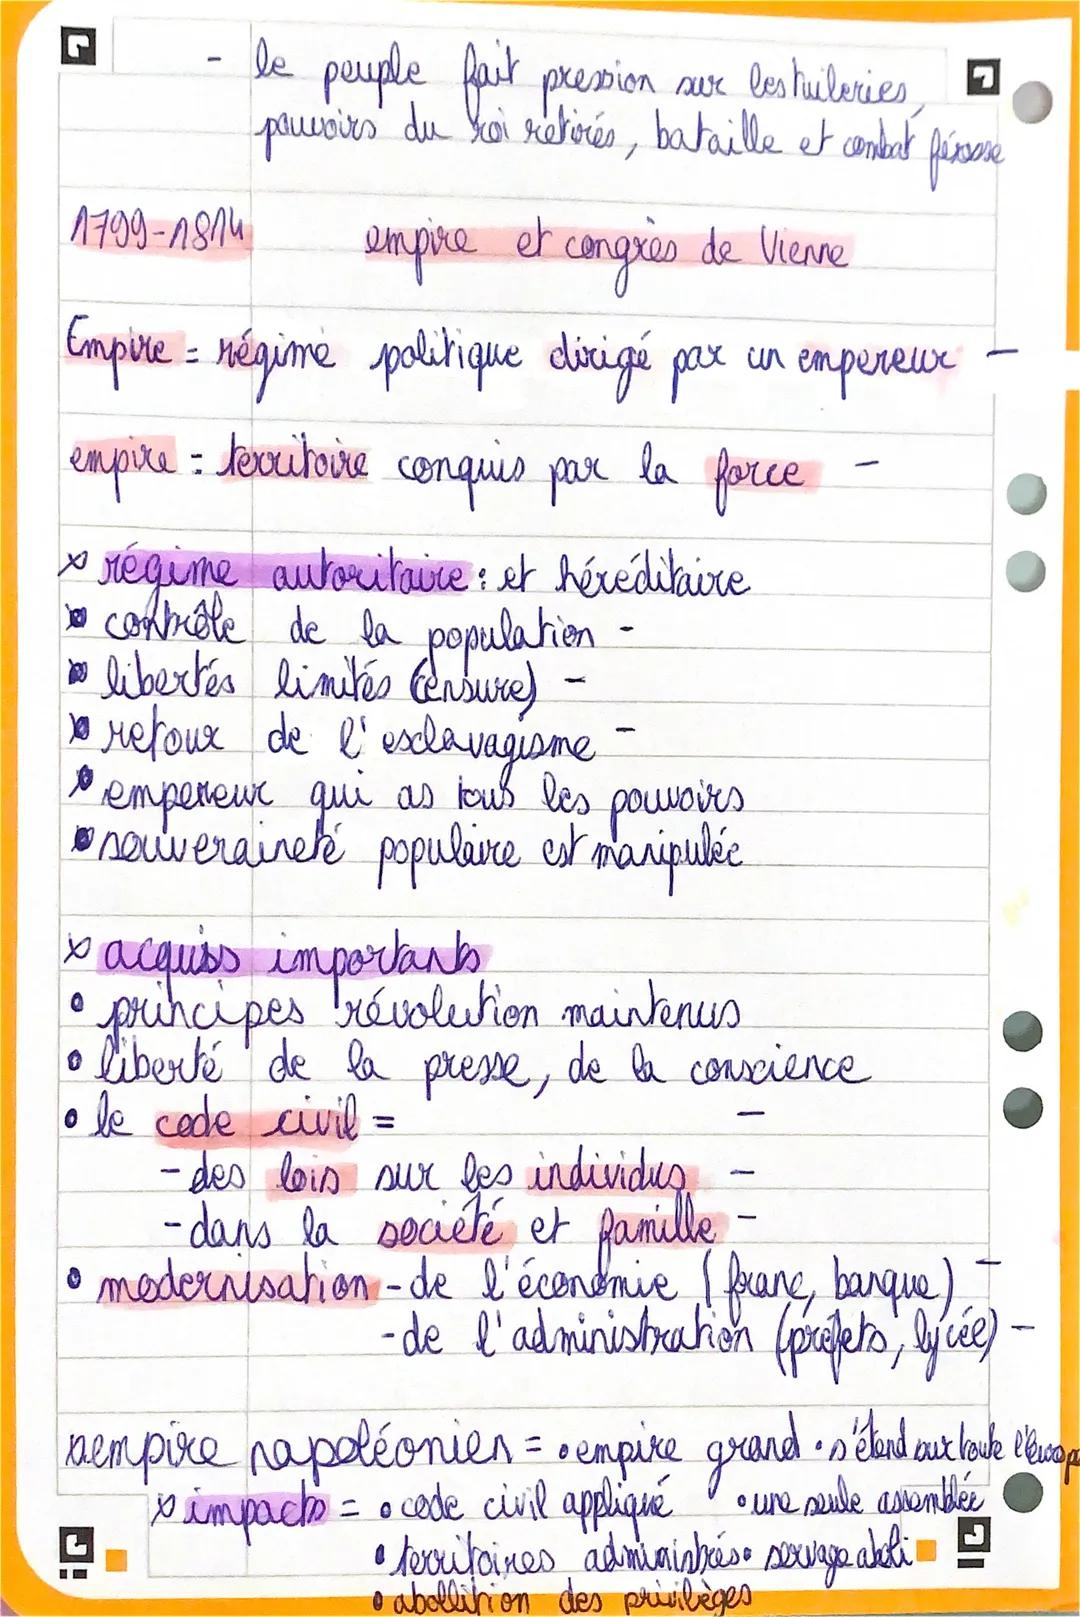 - le peuple fait pression sur les tuileries,
pouvoirs du roi retirés, bataille et combat férosse
1799-1814 empire et congrès de Vienne
Empire = régime politique dirigé par un empereur -
empire = territoire conquis par la force -
x régime autoritaire : et héréditaire
• contrôle de la population -
• libertés limités (censure) -
• retour de l'esclavagisme -
• empereur qui as tous les pouvoirs
• souveraineté populaire est manipulée
x acquiss importants
• principes révolution maintenus
• liberté de la presse, de la conscience
• le code civil = -
- des lois sur les individus -
- dans la société et famille -
• modernisation - de l'économie (franc, banque) -
- de l'administration (préfets, lycée) -
x empire napoléonien = • empire grand • s'étend sur toute l'europe
x impacts = • code civil appliqué • une seule assemblée
• territoires administrés • servage aboli
• abollition des privilèges